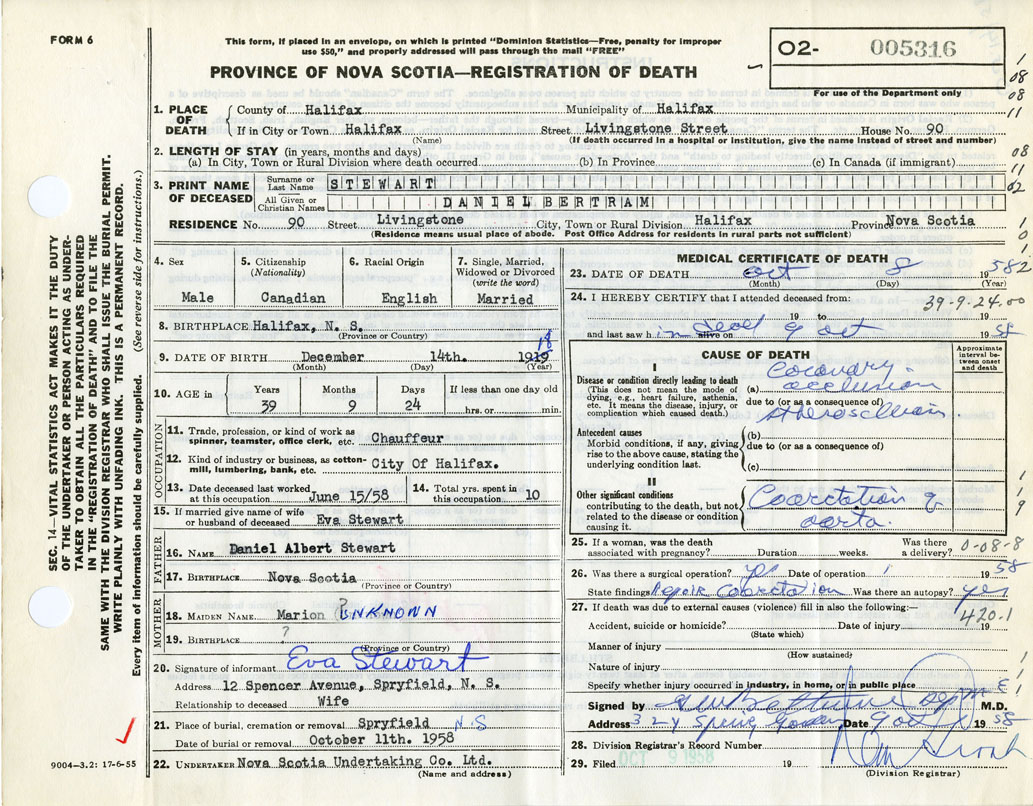 FORM 6
This form, if placed in an envelope, on which is printed "Dominion Statistics—Free, penalty for improper
use $50," and properly addressed will pass through the mail "FREE"
PROVINCE OF NOVA SCOTIA—REGISTRATION OF DEATH
O2- 005316
For use of the Department only
1. PLACE OF DEATH
County of Halifax Municipality of Halifax
If in City or Town Halifax Street Livingstone Street House No. 90
(Name) (If death occurred in a hospital or institution, give the name instead of street and number)
2. LENGTH OF STAY (in years, months and days)
(a) In City, Town or Rural Division where death occurred (b) In Province (c) In Canada (if immigrant)
3. PRINT NAME OF DECEASED
Surname or Last Name STEWART
All Given or Christian Names DANIEL BERTRAM
RESIDENCE No. 90 Street Livingstone City, Town or Rural Division Halifax Province Nova Scotia
(Residence means usual place of abode. Post Office Address for residents in rural parts not sufficient)
4. Sex
Male
5. Citizenship (Nationality)
Canadian
6. Racial Origin
English
7. Single, Married, Widowed or Divorced (write the word)
Married
8. BIRTHPLACE Halifax, N. S.
(Province or Country)
9. DATE OF BIRTH December 14th. 1919 18
(Month) (Day) (Year)
10. AGE in
Years Months Days If less than one day old
39 9 24 hrs. or min.
OCCUPATION
11. Trade, profession, or kind of work as spinner, teamster, office clerk, etc. Chauffeur
12. Kind of industry or business, as cotton-mill, lumbering, bank, etc. City Of Halifax.
13. Date deceased last worked at this occupation June 15/58
14. Total yrs. spent in this occupation 10
15. If married give name of wife or husband of deceased Eva Stewart
FATHER
16. NAME Daniel Albert Stewart
17. BIRTHPLACE Nova Scotia
(Province or Country)
MOTHER
18. MAIDEN NAME Marion ? UNKNOWN
19. BIRTHPLACE ?
(Province or Country)
20. Signature of informant Eva Stewart
Address 12 Spencer Avenue, Spryfield, N. S.
Relationship to deceased Wife
21. Place of burial, cremation or removal Spryfield N.S
Date of burial or removal October 11th. 1958
22. UNDERTAKER Nova Scotia Undertaking Co. Ltd.
(Name and address)
9004—3.2: 17-6-55
SEC. 14—VITAL STATISTICS ACT MAKES IT THE DUTY
OF THE UNDERTAKER OR PERSON ACTING AS UNDER-
TAKER TO OBTAIN ALL THE PARTICULARS REQUIRED
IN THE "REGISTRATION OF DEATH" AND TO FILE THE
SAME WITH THE DIVISION REGISTRAR WHO SHALL ISSUE THE BURIAL PERMIT.
WRITE PLAINLY WITH UNFADING INK. THIS IS A PERMANENT RECORD.
Every item of information should be carefully supplied. (See reverse side for instructions.)
MEDICAL CERTIFICATE OF DEATH
23. DATE OF DEATH Oct 8 1958
(Month) (Day) (Year)
24. I HEREBY CERTIFY that I attended deceased from: 39-9-24.00
19 to 19
and last saw h im dead alive on 9 Oct 19 58
CAUSE OF DEATH
Approximate interval between onset and death
I
Disease or condition directly leading to death
(This does not mean the mode of dying, e.g., heart failure, asthenia, etc. It means the disease, injury, or complication which caused death.)
(a) Coronary occlusion
due to (or as a consequence of)
Antecedent causes
Morbid conditions, if any, giving rise to the above cause, stating the underlying condition last.
(b)
due to (or as a consequence of)
(c)
II
Other significant conditions contributing to the death, but not related to the disease or condition causing it.
Coarctation of aorta.
25. If a woman, was the death associated with pregnancy? Duration weeks. Was there a delivery? 0-08-8
26. Was there a surgical operation? yes Date of operation 19 58
State findings Repair Coarctation Was there an autopsy? yes
27. If death was due to external causes (violence) fill in also the following:— 420.1
Accident, suicide or homicide? Date of injury 19
(State which)
Manner of injury
(How sustained)
Nature of injury
Specify whether injury occurred in industry, in home, or in public place
Signed by M.D.
Address Date 9 Oct 19 58
28. Division Registrar's Record Number
29. Filed OCT 9 1958 19
(Division Registrar)